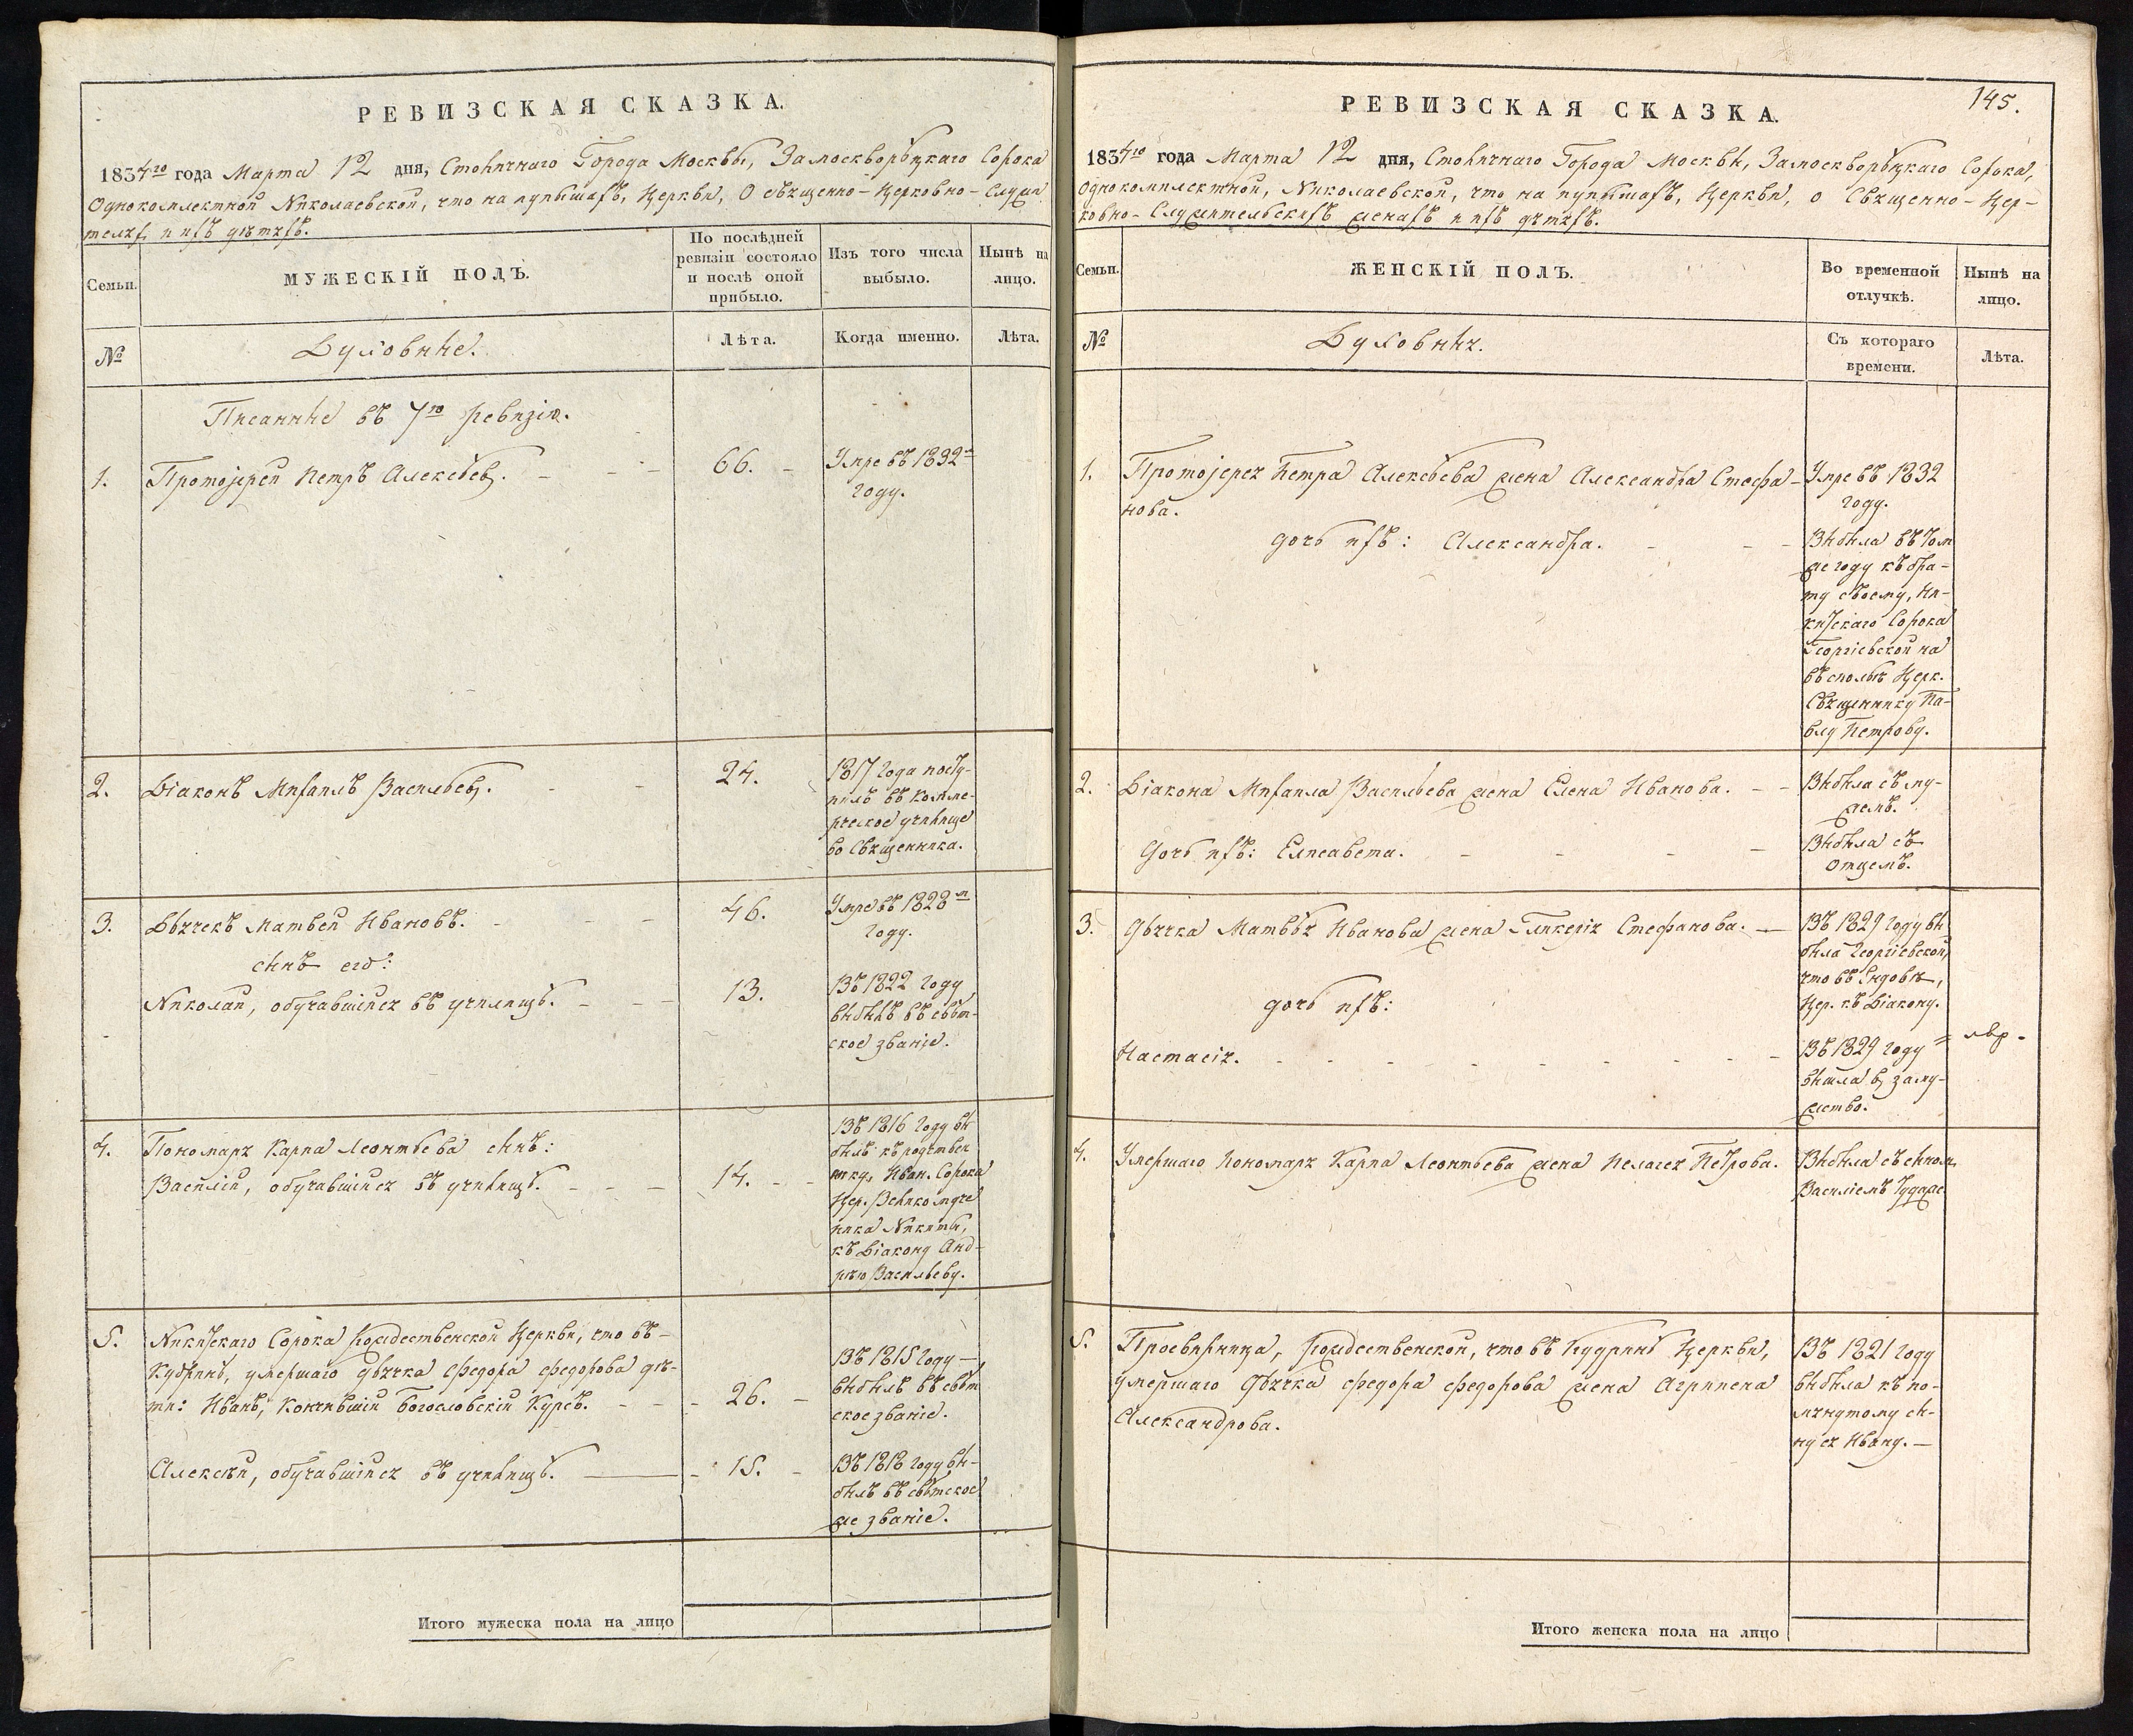 РЕВИЗСКАЯ СКАЗКА.
1834го года Марта 12 дня, Столичнаго Города Москвы, Замоскворѣцкаго Сорока
Однокомплектной Николаевской, что на пупышахъ, Церкви, о Священно-Церковно-Служи
теляхъ и ихъ дѣтяхъ.
Семьи.
МУЖЕСКІЙ ПОЛЪ.
По послѣдней
ревизіи состояло
и послѣ оной
прибыло.
Изъ того числа
выбыло.
Нынѣ на
лицо.
№
Духовные.
Лѣта.
Когда именно.
Лѣта.
Писанные въ 7ю ревизію.
1. Протоіерей Петръ Алексѣевъ. 66. Умре въ 1832м
году.
2. Діаконъ Михаилъ Васильевъ. 24. 1817 года посту-
пилъ въ комме-
рческое училище
во Священника.
3. Дьячекъ Матвей Ивановъ. 46. Умре въ 1828м
году.
сынъ его:
Николай, обучавшійся въ училищѣ. 13. Въ 1822 году
выбылъ въ свѣт-
ское званіе.
4. Пономаря Карпа Леонтьева сынъ:
Василій, обучавшійся въ училищѣ. 14. Въ 1816 году вы
былъ къ родствен
нику, Иван. Сорока
Цер. Великомуче
ника Никиты,
къ Діакону Анд-
рею Васильеву.
5. Никитскаго Сорока Рождественской Церкви, что въ-
Кудринѣ, умершаго дьячка Федора Федорова дѣ-
ти: Иванъ, кончившій Богословскій Курсъ. 26. Въ 1815 году
выбылъ въ свѣт
ское званіе.
Алексѣй, обучавшійся въ училищѣ. 15. Въ 1818 году вы-
былъ въ свѣтское
же званіе.
Итого мужеска пола на лицо
РЕВИЗСКАЯ СКАЗКА.
145.
1834го года Марта 12 дня, Столичнаго Города Москвы, Замоскворѣцкаго Сорока,
Однокомплектной, Николаевской, что на пупышахъ, Церкви, о Священно-Цер-
ковно-Служительскихъ женахъ и ихъ дѣтяхъ.
Семьи.
ЖЕНСКІЙ ПОЛЪ.
Во временной
отлучкѣ.
Нынѣ на
лицо.
№
Духовныя.
Съ котораго
времени.
Лѣта.
1. Протоіерея Петра Алексѣева жена Александра Стефа-
нова.
Умре въ 1832
году.
дочь ихъ: Александра. Выбыла въ том
же году къ бра-
ту своему, Ни-
китскаго Сорока
Георгіевской на
всполье Церк.
Священнику Па-
влу Петрову.
2. Діакона Михаила Васильева жена Елена Иванова. Выбыла съ му-
жемъ.
Дочь ихъ: Елисавета. Выбыла съ
отцемъ.
3. Дьячка Матвѣя Иванова жена Гликерія Стефанова. Въ 1829 году вы
была Георгіевской,
что въ Ендовѣ,
Цер. къ Діакону.
дочь ихъ:
Настасія. Въ 1829 году
вышла въ заму-
жство.
4. Умершаго Пономаря Карпа Леонтьева жена Пелагея Петрова. Выбыла съ сыном
Василіемъ туда же
5. Просвирница, Рождественской, что въ Кудринѣ Церкви,
умершаго дьячка Федора Федорова жена Агрипена
Александрова.
Въ 1821 году
выбыла къ по-
мянутому сы-
ну ея Ивану.
Итого женска пола на лицо